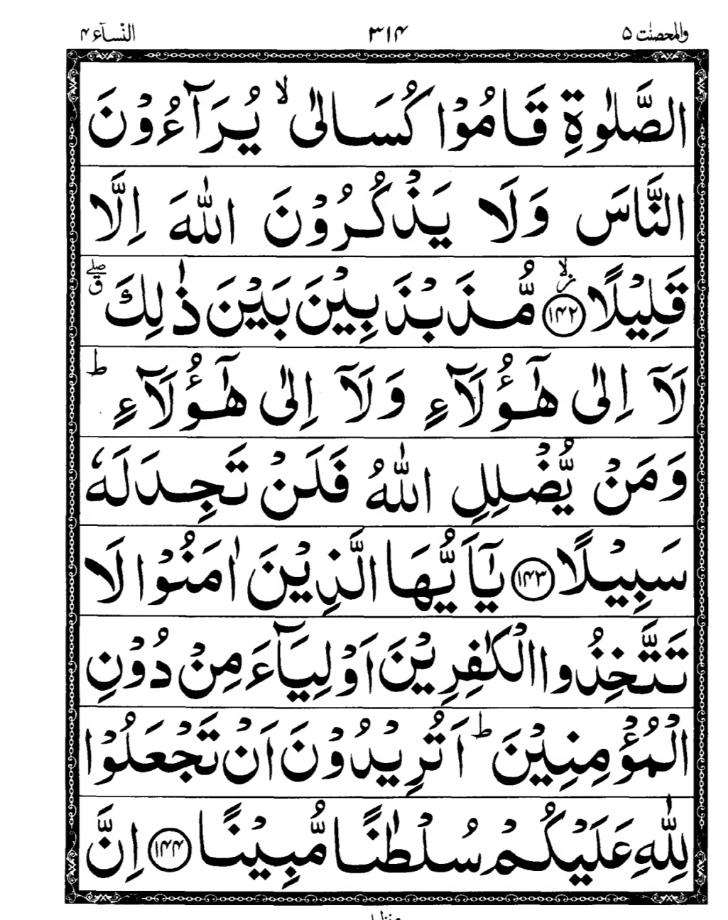 والمحصنٰت ۵ ۳۱۴ النّسآء ۴
الصَّلٰوةِ قَامُوْا كُسَالٰى ۙ يُرَآءُوْنَ
النَّاسَ وَلَا يَذْكُرُوْنَ اللّٰهَ اِلَّا
قَلِيْلًا ﴿۱۴۲﴾ مُّذَبْذَبِيْنَ بَيْنَ ذٰلِكَ
لَآ اِلٰى هٰٓؤُلَآءِ وَلَآ اِلٰى هٰٓؤُلَآءِ ؕ
وَمَنْ يُّضْلِلِ اللّٰهُ فَلَنْ تَجِدَ لَهٗ
سَبِيْلًا ﴿۱۴۳﴾ يٰٓاَيُّهَا الَّذِيْنَ اٰمَنُوْا لَا
تَتَّخِذُوا الْكٰفِرِيْنَ اَوْلِيَآءَ مِنْ دُوْنِ
الْمُؤْمِنِيْنَ ؕ اَتُرِيْدُوْنَ اَنْ تَجْعَلُوْا
لِلّٰهِ عَلَيْكُمْ سُلْطٰنًا مُّبِيْنًا ﴿۱۴۴﴾ اِنَّ